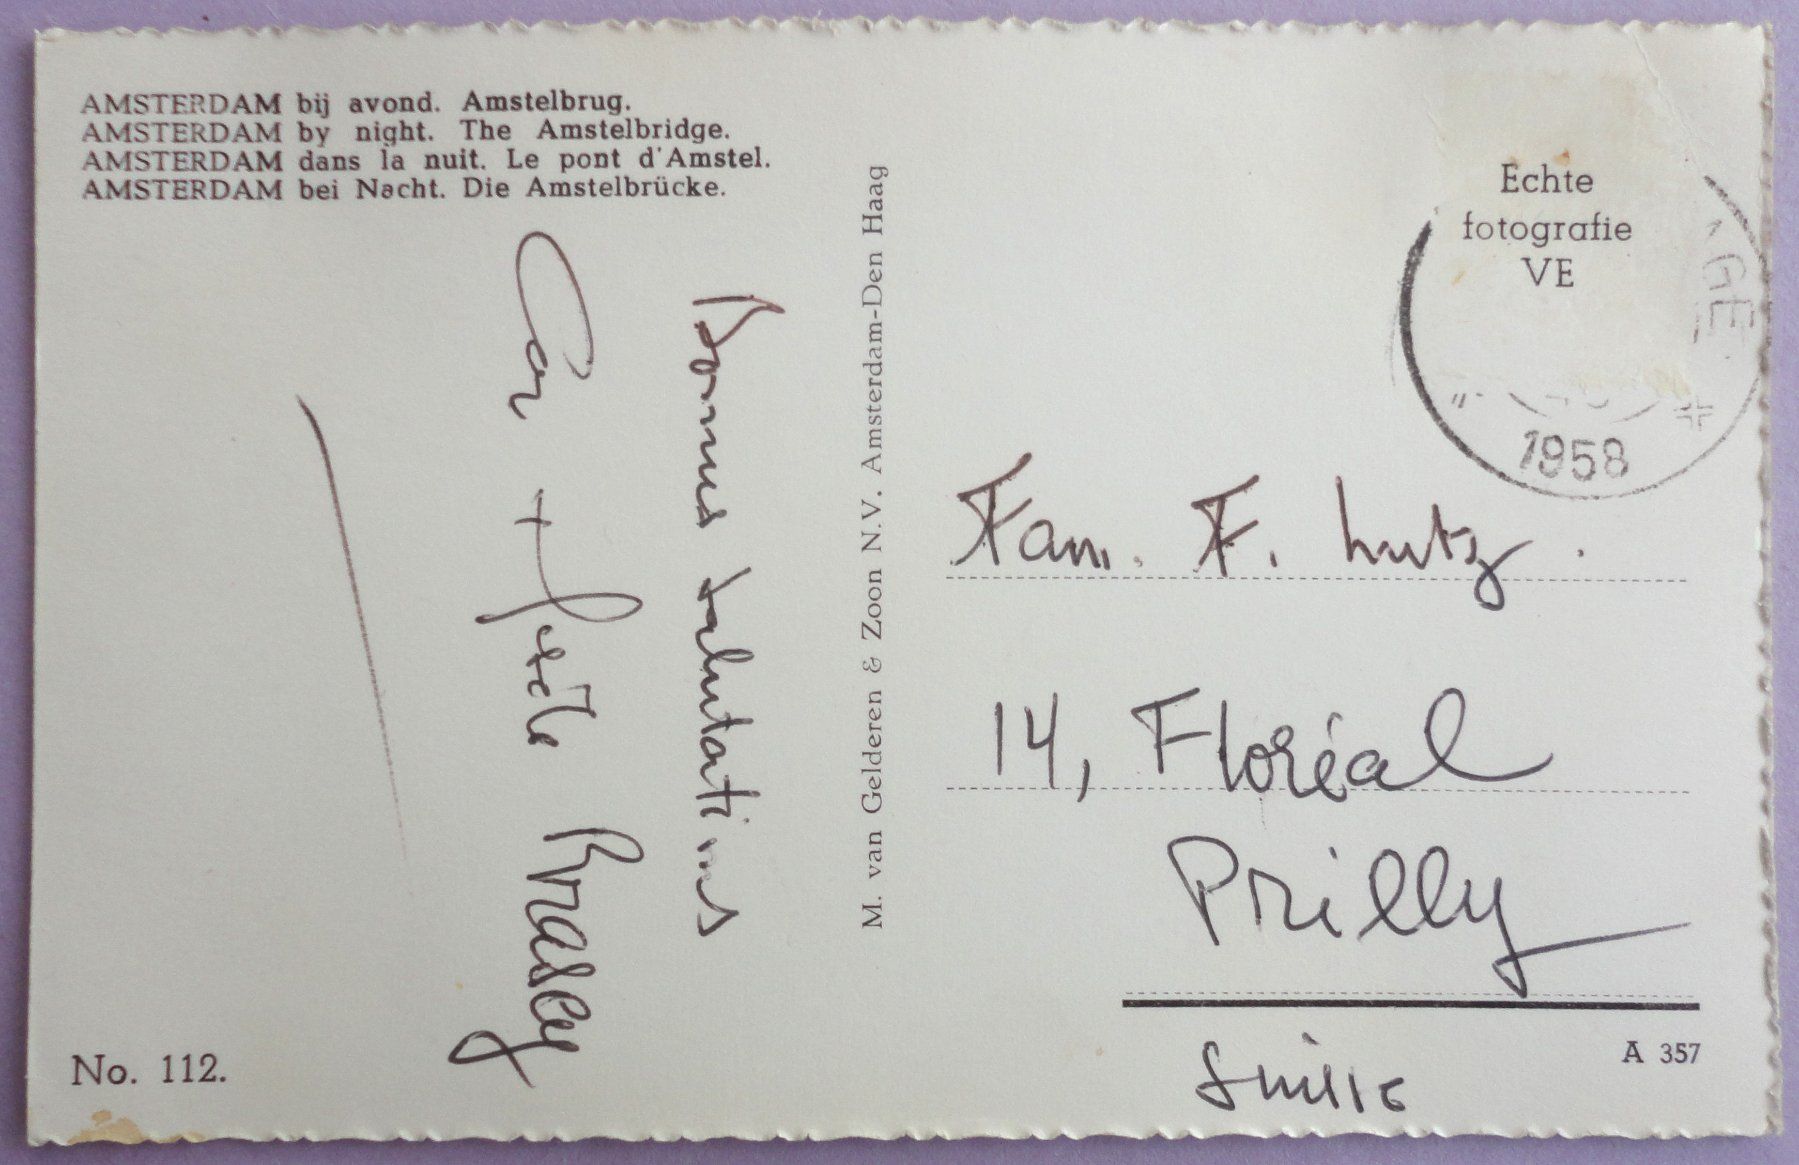 AMSTERDAM bij avond. Amstelbrug.
AMSTERDAM by night. The Amstelbridge.
AMSTERDAM dans la nuit. Le pont d'Amstel.
AMSTERDAM bei Nacht. Die Amstelbrücke.
Bonnes salutations
Cor +
Brasey
No. 112.
M. van Gelderen & Zoon N.V. Amsterdam-Den Haag
Echte
fotografie
VE
1958
Fam. F. Lutz.
14, Floréal
Prilly
Suisse
A 357